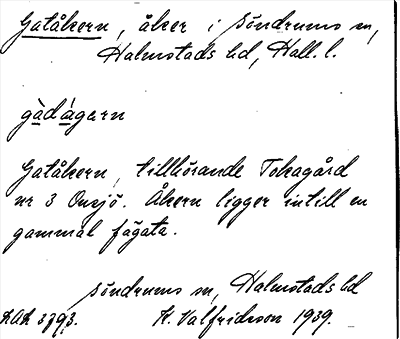 Gatåkern, åker i Söndrums sn,
Halmstads hd, Hall. l.
gàdágarn
Gatåkern, tillhörande Tokagård
nr 3 Onsjö. Åkern ligger intill en
gammal fägata.
Söndrums sn, Halmstads hd
LAL 3793. K. Valfridsson 1939.